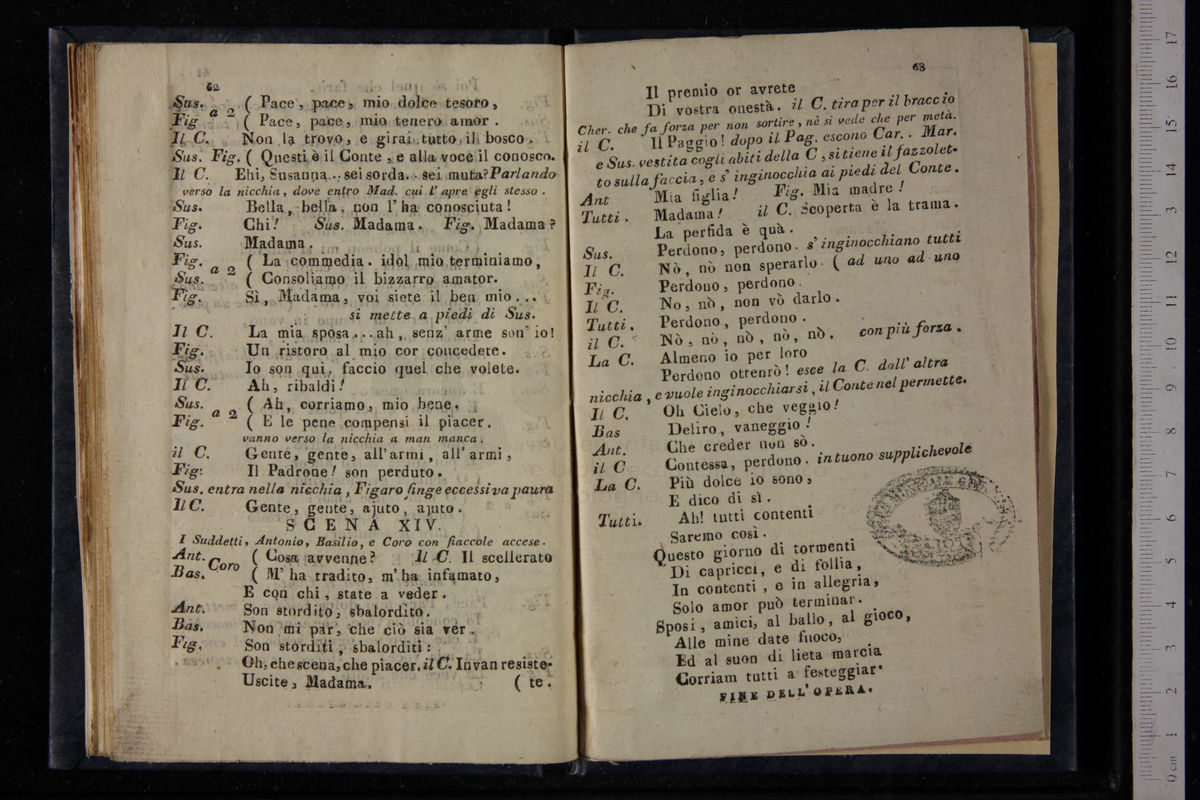 62
Sus. a 2 ( Pace, pace, mio dolce tesoro,
Fig ( Pace, pace, mio tenero amor.
Il C. Non la trovo, e girai tutto il bosco.
Sus. Fig. ( Questi è il Conte, e alla voce il conosco.
Il C. Ehi, Susanna... sei sorda.. sei muta? Parlando
verso la nicchia, dove entro Mad. cui l'apre egli stesso.
Sus. Bella, bella, non l'ha conosciuta!
Fig. Chi! Sus. Madama. Fig. Madama?
Sus. Madama.
Fig. a 2 ( La commedia. idol mio terminiamo,
Sus. ( Consoliamo il bizzarro amator.
Fig. Sì, Madama, voi siete il ben mio...
si mette a piedi di Sus.
Il C. La mia sposa... ah, senz' arme son' io!
Fig. Un ristoro al mio cor concedete.
Sus. Io son quì, faccio quel che volete.
Il C. Ah, ribaldi!
Sus. a 2 ( Ah, corriamo, mio bene.
Fig. ( E le pene compensi il piacer.
vanno verso la nicchia a man manca.
il C. Gente, gente, all'armi, all'armi,
Fig: Il Padrone! son perduto.
Sus. entra nella nicchia, Figaro finge eccessiva paura
Il C. Gente, gente, ajuto, ajuto.
SCENA XIV.
I Suddetti, Antonio, Basilio, e Coro con fiaccole accese.
Ant. Coro ( Cosa avvenne? Il C. Il scellerato
Bas. ( M' ha tradito, m' ha infamato,
E con chi, state a veder.
Ant. Son stordito, sbalordito.
Bas. Non mi par, che ciò sia ver.
Fig. Son storditi, sbalorditi:
Oh, che scena, che piacer. il C. Invan resiste-
Uscite, Madama. ( te.
63
Il premio or avrete
Di vostra onestà. il C. tira per il braccio
Cher. che fa forza per non sortire, nè si vede che per metà.
il C. Il Paggio! dopo il Pag. escono Car.. Mar.
e Sus. vestita cogli abiti della C, si tiene il fazzolet-
to sulla faccia, e s' inginocchia ai piedi del Conte.
Ant Mia figlia! Fig. Mia madre!
Tutti. Madama! il C. Scoperta è la trama.
La perfida è quà.
Sus. Perdono, perdono. s' inginocchiano tutti
Il C. Nò, nò non sperarlo. ( ad uno ad uno
Fig. Perdono, perdono.
Il C. No, nò, non vò darlo.
Tutti. Perdono, perdono.
il C. Nò, nò, nò, nò, nò. con più forza.
La C. Almeno io per loro
Perdono otrenrò! esce la C. dall' altra
nicchia, e vuole inginocchiarsi, il Conte nel permette.
Il C. Oh Cielo, che veggio!
Bas Deliro, vaneggio!
Ant. Che creder non sò.
il C Contessa, perdono. in tuono supplichevole
La C. Più dolce io sono,
E dico di sì.
Tutti. Ah! tutti contenti
Saremo così.
Questo giorno di tormenti
Di capricci, e di follia,
In contenti, e in allegria,
Solo amor può terminar.
Sposi, amici, al ballo, al gioco,
Alle mine date fuoco,
Ed al suon di lieta marcia
Corriam tutti a festeggiar.
FINE DELL'OPERA.
0 cm 1 2 3 4 5 6 7 8 9 10 11 12 13 14 15 16 17